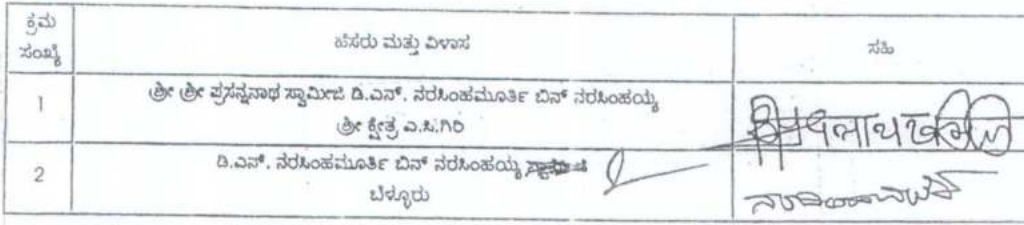 ಕ್ರಮ ಸಂಖ್ಯೆ ಹೆಸರು ಮತ್ತು ವಿಳಾಸ ಸಹಿ
1 ಶ್ರೀ ಶ್ರೀ ಪ್ರಸನ್ನನಾಥ ಸ್ವಾಮೀಜಿ ಡಿ.ಎನ್. ನರಸಿಂಹಮೂರ್ತಿ ಬಿನ್ ನರಸಿಂಹಯ್ಯ
ಶ್ರೀ ಕ್ಷೇತ್ರ ಎ.ಸಿ.ಗಿರಿ
2 ಡಿ.ಎನ್. ನರಸಿಂಹಮೂರ್ತಿ ಬಿನ್ ನರಸಿಂಹಯ್ಯ
ಬೆಳ್ಳೂರು